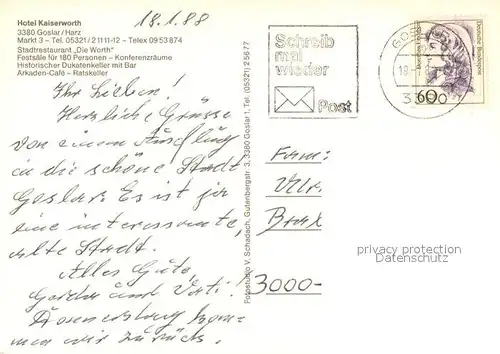 Hotel Kaiserworth
3380 Goslar/Harz
Markt 3 – Tel. 05321/21111-12 – Telex 0953874
Stadtrestaurant „Die Worth"
Festsäle für 180 Personen – Konferenzräume
Historischer Dukatenkeller mit Bar
Arkaden-Café – Ratskeller
18.1.88
Ihr Lieben!
Herzliche Grüsse
von einem Ausflug
in die schöne Stadt
Goslar. Es ist ja
eine interessante,
alte Stadt.
Alles Gute,
Gerda und
Donnerstag kom-
men wir zurück.
Fotostudio V. Schadach, Gutenbergstr. 3, 3380 Goslar 1, Tel. (05321) 25677
Schreib
mal
wieder
Post
GOSLAR
3380
Deutsche Bundespost
60
Fam:
3000-
privacy protection